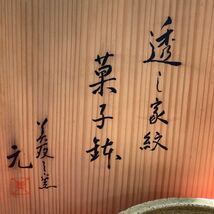 透し家紋
菓子鉢
元